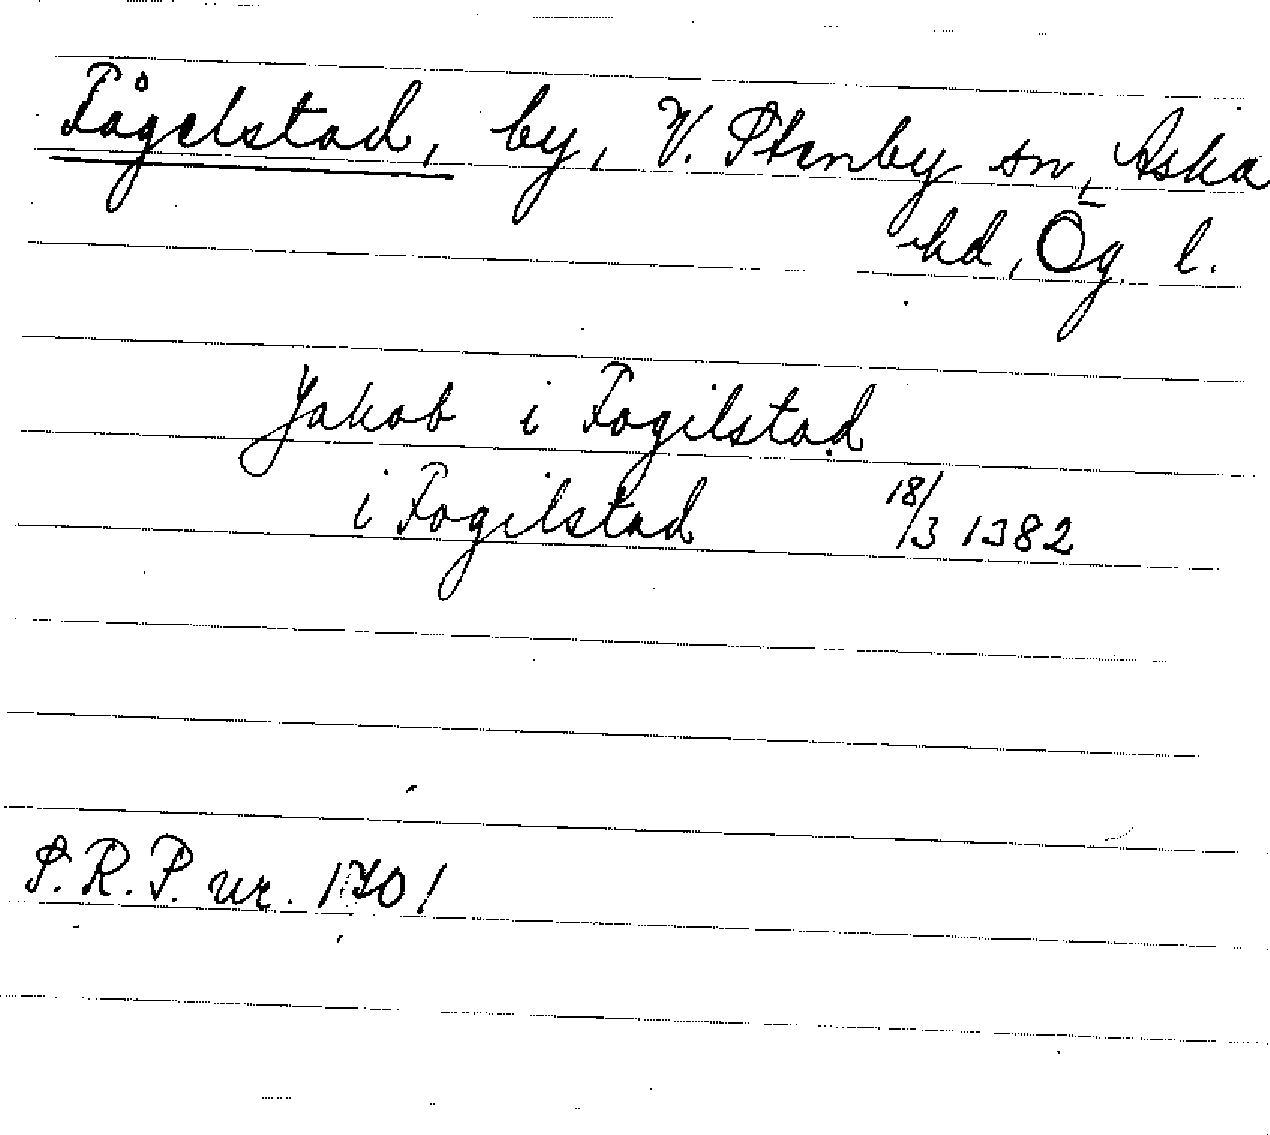 Fågelstad, by, V. Stenby sn, Aska
hd, Ög. l.
Jakob i Fogilstad
i Fogilstad 18/3 1382
S.R.P. nr. 1701